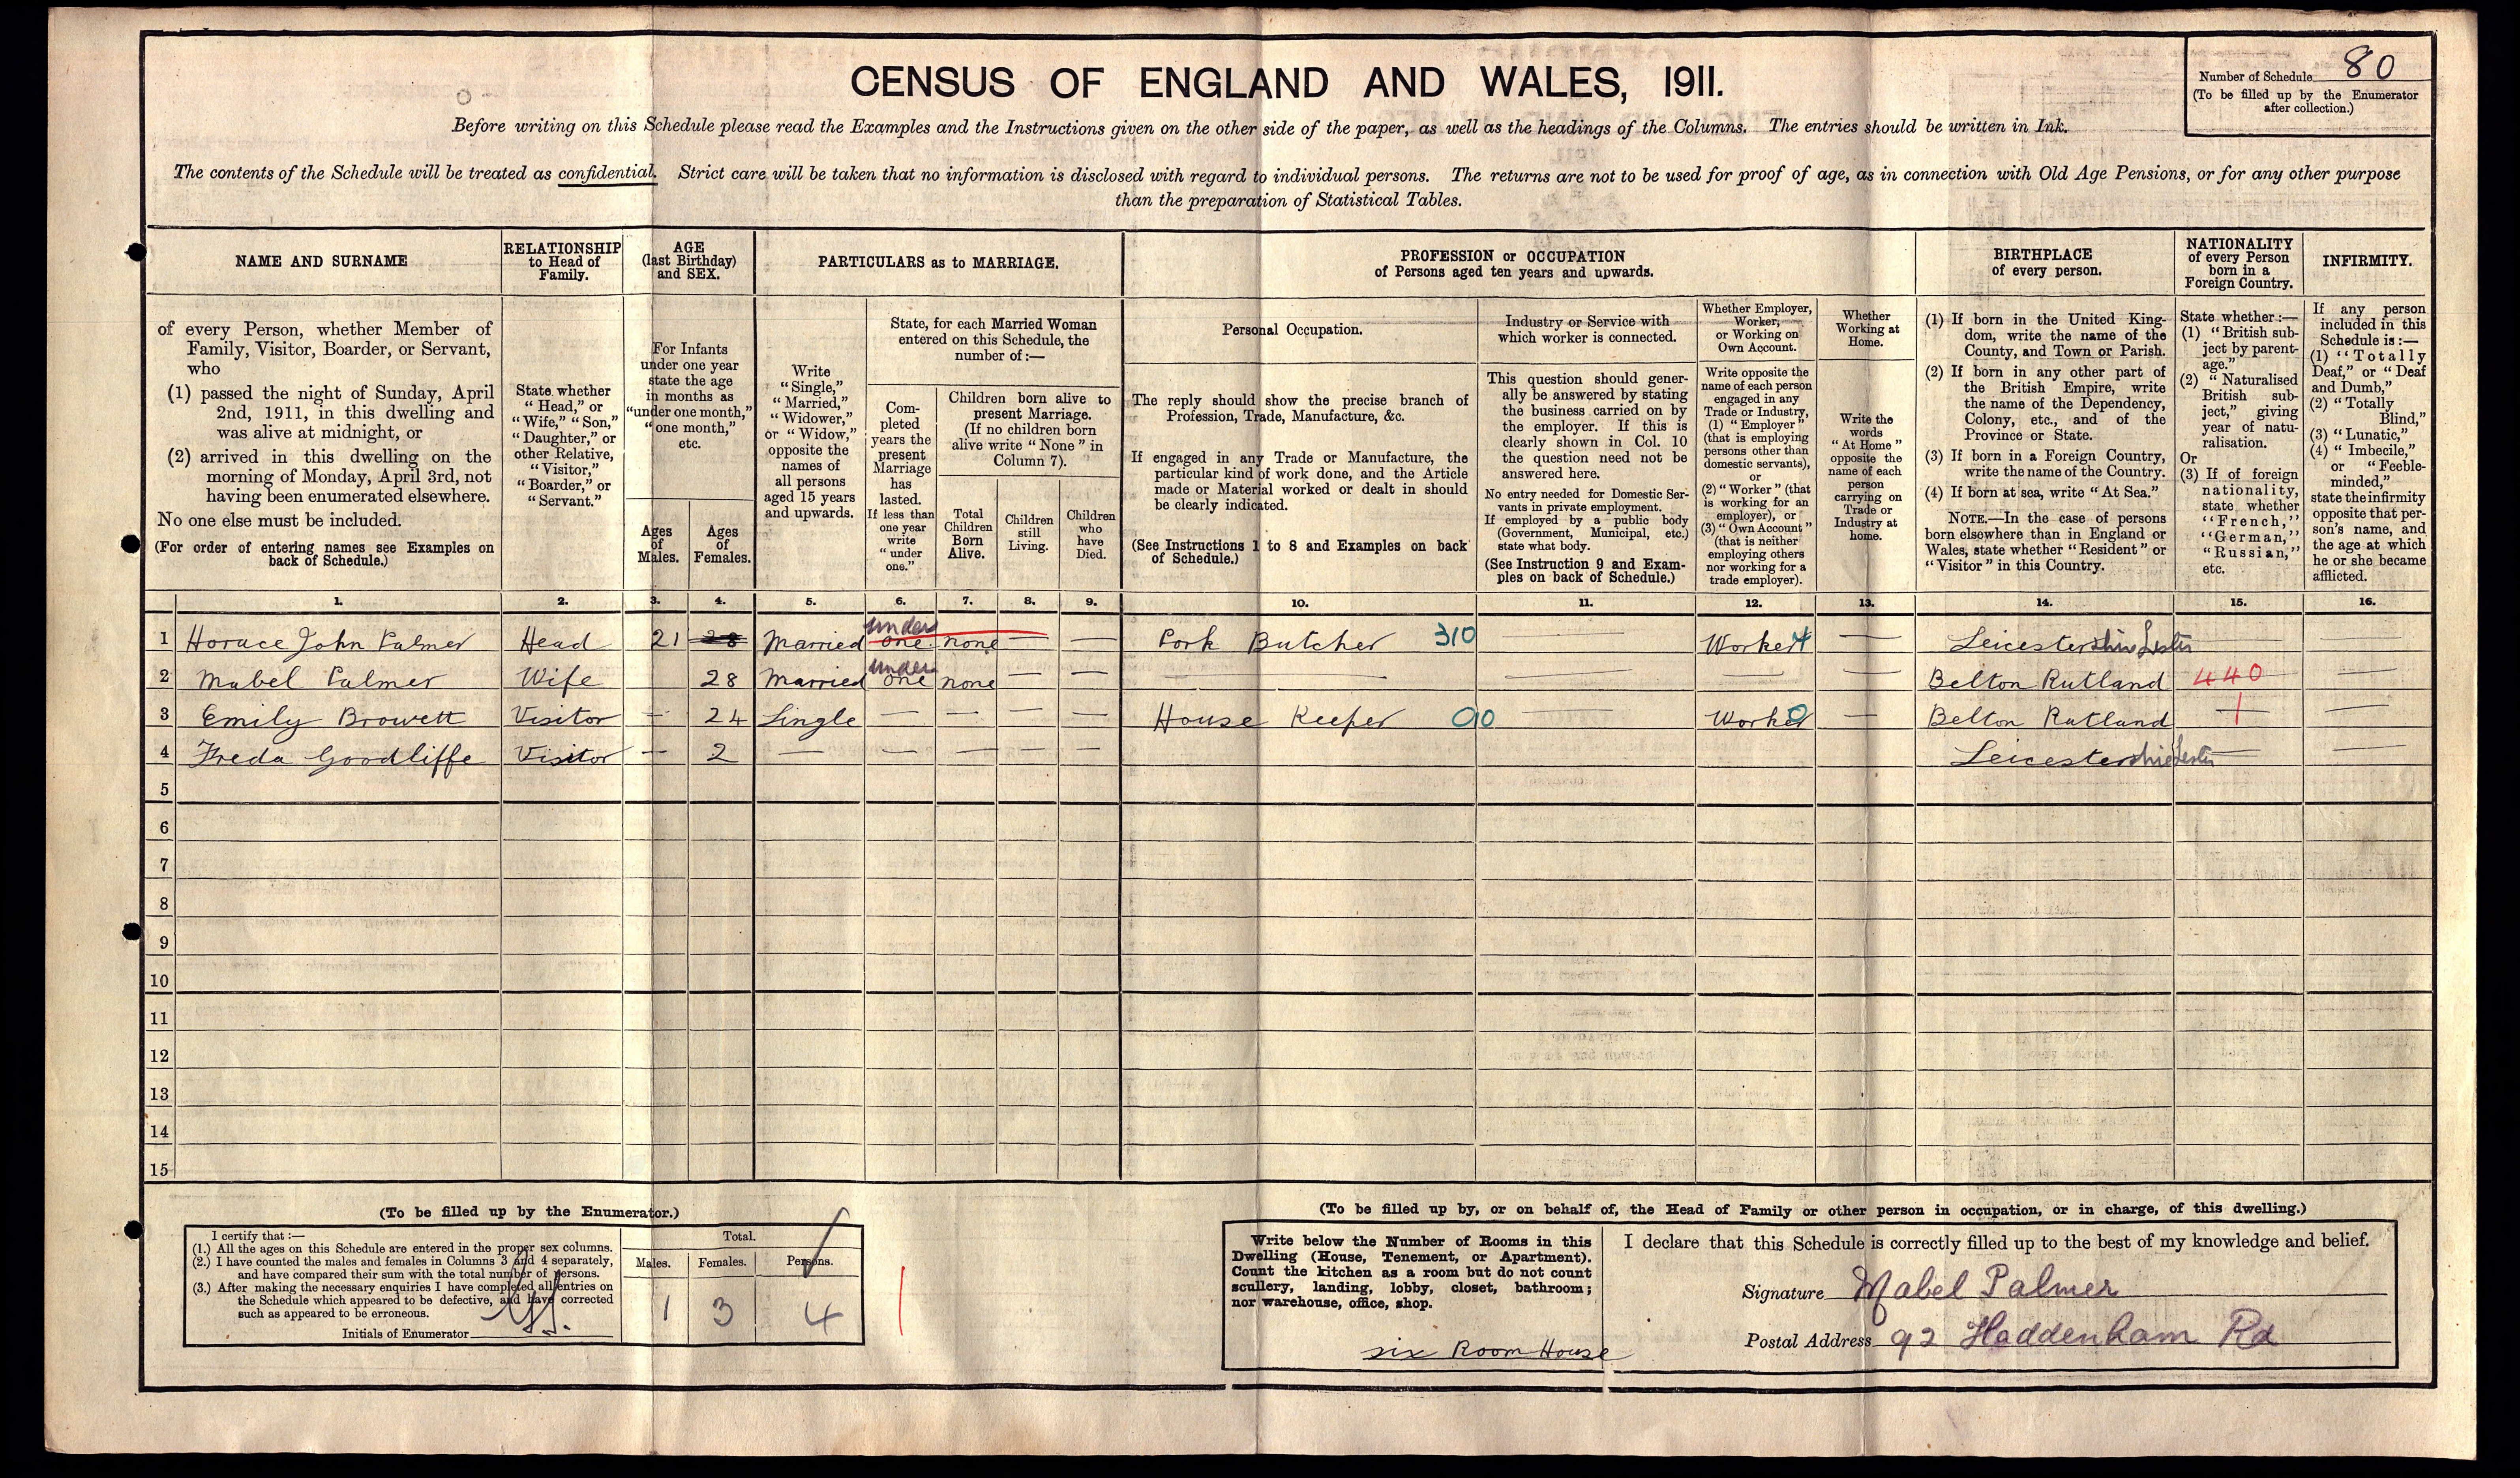 CENSUS OF ENGLAND AND WALES, 1911.
Number of Schedule 80
(To be filled up by the Enumerator
after collection.)
Before writing on this Schedule please read the Examples and the Instructions given on the other side of the paper, as well as the headings of the Columns. The entries should be written in Ink.
The contents of the Schedule will be treated as confidential. Strict care will be taken that no information is disclosed with regard to individual persons. The returns are not to be used for proof of age, as in connection with Old Age Pensions, or for any other purpose
than the preparation of Statistical Tables.
NAME AND SURNAME
of every Person, whether Member of
Family, Visitor, Boarder, or Servant,
who
(1) passed the night of Sunday, April
2nd, 1911, in this dwelling and
was alive at midnight, or
(2) arrived in this dwelling on the
morning of Monday, April 3rd, not
having been enumerated elsewhere.
No one else must be included.
(For order of entering names see Examples on
back of Schedule.)
RELATIONSHIP
to Head of
Family.
State whether
"Head," or
"Wife," "Son,"
"Daughter," or
other Relative,
"Visitor,"
"Boarder," or
"Servant."
AGE
(last Birthday)
and SEX.
For Infants
under one year
state the age
in months as
"under one month,"
"one month,"
etc.
Ages
of
Males.
Ages
of
Females.
PARTICULARS as to MARRIAGE.
Write
"Single,"
"Married,"
"Widower,"
or "Widow,"
opposite the
names of
all persons
aged 15 years
and upwards.
State, for each Married Woman
entered on this Schedule, the
number of:—
Com-
pleted
years the
present
Marriage
has
lasted.
If less than
one year
write
"under
one."
Children born alive to
present Marriage.
(If no children born
alive write "None" in
Column 7).
Total
Children
Born
Alive.
Children
still
Living.
Children
who
have
Died.
PROFESSION or OCCUPATION
of Persons aged ten years and upwards.
Personal Occupation.
The reply should show the precise branch of
Profession, Trade, Manufacture, &c.
If engaged in any Trade or Manufacture, the
particular kind of work done, and the Article
made or Material worked or dealt in should
be clearly indicated.
(See Instructions 1 to 8 and Examples on back
of Schedule.)
Industry or Service with
which worker is connected.
This question should gener-
ally be answered by stating
the business carried on by
the employer. If this is
clearly shown in Col. 10
the question need not be
answered here.
No entry needed for Domestic Ser-
vants in private employment.
If employed by a public body
(Government, Municipal, etc.)
state what body.
(See Instruction 9 and Exam-
ples on back of Schedule.)
Whether Employer,
Worker,
or Working on
Own Account.
Write opposite the
name of each person
engaged in any
Trade or Industry,
(1) "Employer"
(that is employing
persons other than
domestic servants),
or
(2) "Worker" (that
is working for an
employer), or
(3) "Own Account"
(that is neither
employing others
nor working for a
trade employer).
Whether
Working at
Home.
Write the
words
"At Home"
opposite the
name of each
person
carrying on
Trade or
Industry at
home.
BIRTHPLACE
of every person.
(1) If born in the United King-
dom, write the name of the
County, and Town or Parish.
(2) If born in any other part of
the British Empire, write
the name of the Dependency,
Colony, etc., and of the
Province or State.
(3) If born in a Foreign Country,
write the name of the Country.
(4) If born at sea, write "At Sea."
NOTE.—In the case of persons
born elsewhere than in England or
Wales, state whether "Resident" or
"Visitor" in this Country.
NATIONALITY
of every Person
born in a
Foreign Country.
State whether:—
(1) "British sub-
ject by parent-
age."
(2) "Naturalised
British sub-
ject," giving
year of natu-
ralisation.
Or
(3) If of foreign
nationality,
state whether
"French,"
"German,"
"Russian,"
etc.
INFIRMITY.
If any person
included in this
Schedule is:—
(1) "Totally
Deaf," or "Deaf
and Dumb,"
(2) "Totally
Blind,"
(3) "Lunatic,"
(4) "Imbecile,"
or "Feeble-
minded,"
state the infirmity
opposite that per-
son's name, and
the age at which
he or she became
afflicted.
1. 2. 3. 4. 5. 6. 7. 8. 9. 10. 11. 12. 13. 14. 15. 16.
1 Horace John Palmer Head 21 28 Married under one none — — Pork Butcher 310 Worker 4 — Leicestershire Lester — —
2 Mabel Palmer Wife 28 Married under one none — — — — — — Belton Rutland 440 —
3 Emily Browett Visitor — 24 Single — — — — House Keeper 00 — Worker 0 — Belton Rutland 1 —
4 Freda Goodliffe Visitor — 2 — — — — — Leicestershire Lester — —
5
6
7
8
9
10
11
12
13
14
15
(To be filled up by the Enumerator.)
I certify that:—
(1.) All the ages on this Schedule are entered in the proper sex columns.
(2.) I have counted the males and females in Columns 3 and 4 separately,
and have compared their sum with the total number of persons.
(3.) After making the necessary enquiries I have completed all entries on
the Schedule which appeared to be defective, and have corrected
such as appeared to be erroneous.
Initials of Enumerator
Total.
Males. Females. Persons.
1 3 4
(To be filled up by, or on behalf of, the Head of Family or other person in occupation, or in charge, of this dwelling.)
Write below the Number of Rooms in this
Dwelling (House, Tenement, or Apartment).
Count the kitchen as a room but do not count
scullery, landing, lobby, closet, bathroom;
nor warehouse, office, shop.
six Room House
I declare that this Schedule is correctly filled up to the best of my knowledge and belief.
Signature Mabel Palmer
Postal Address 92 Haddenham Rd